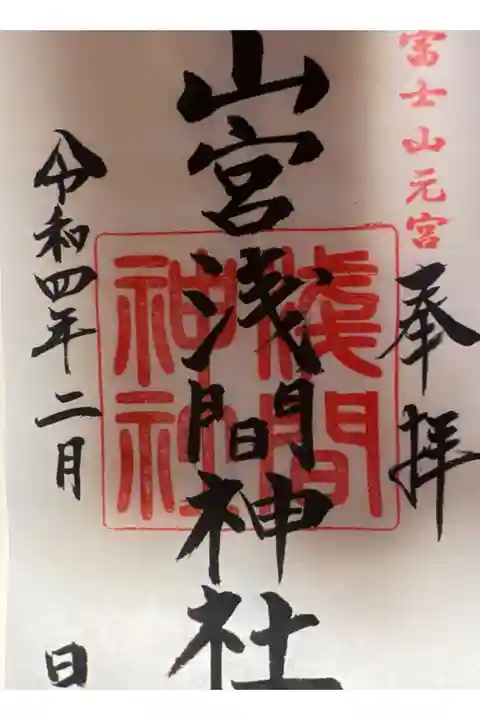 富士山元宮
奉拝
山宮浅間神社
浅間
神社
令和四年二月
日